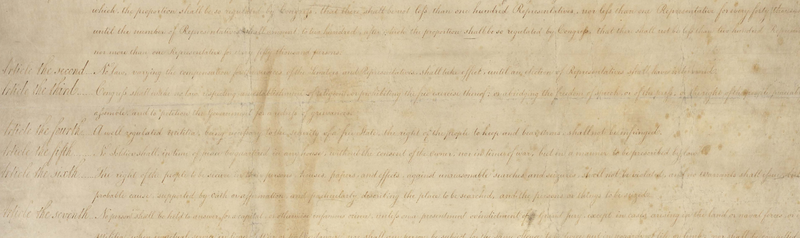 which the proportion shall be so regulated by Congress, that there shall be not less than one hundred Representatives, nor less than one Representative for every forty thousand
until the number of Representatives shall amount to two hundred, after which the proportion shall be so regulated by Congress, that there shall not be less than two hundred
nor more than one Representative for every fifty thousand persons.
Article the second... No law, varying the compensation for the services of the Senators and Representatives, shall take effect, until an election of Representatives shall have intervened.
Article the third... Congress shall make no law respecting an establishment of religion, or prohibiting the free exercise thereof; or abridging the freedom of speech, or of the press; or the right of the people
assemble, and to petition the Government for a redress of grievances.
Article the fourth... A well regulated Militia, being necessary to the security of a free State, the right of the people to keep and bear Arms, shall not be infringed.
Article the fifth... No Soldier shall, in time of peace be quartered in any house, without the consent of the Owner, nor in time of war, but in a manner to be prescribed by law.
Article the sixth... The right of the people to be secure in their persons, houses, papers, and effects, against unreasonable searches and seizures, shall not be violated, and no warrants shall issue,
probable cause, supported by Oath or affirmation, and particularly describing the place to be searched, and the persons or things to be seized.
Article the seventh... No person shall be held to answer for a capital, or otherwise infamous crime, unless on a presentment or indictment of a Grand Jury, except in cases arising in the land or naval forces, or